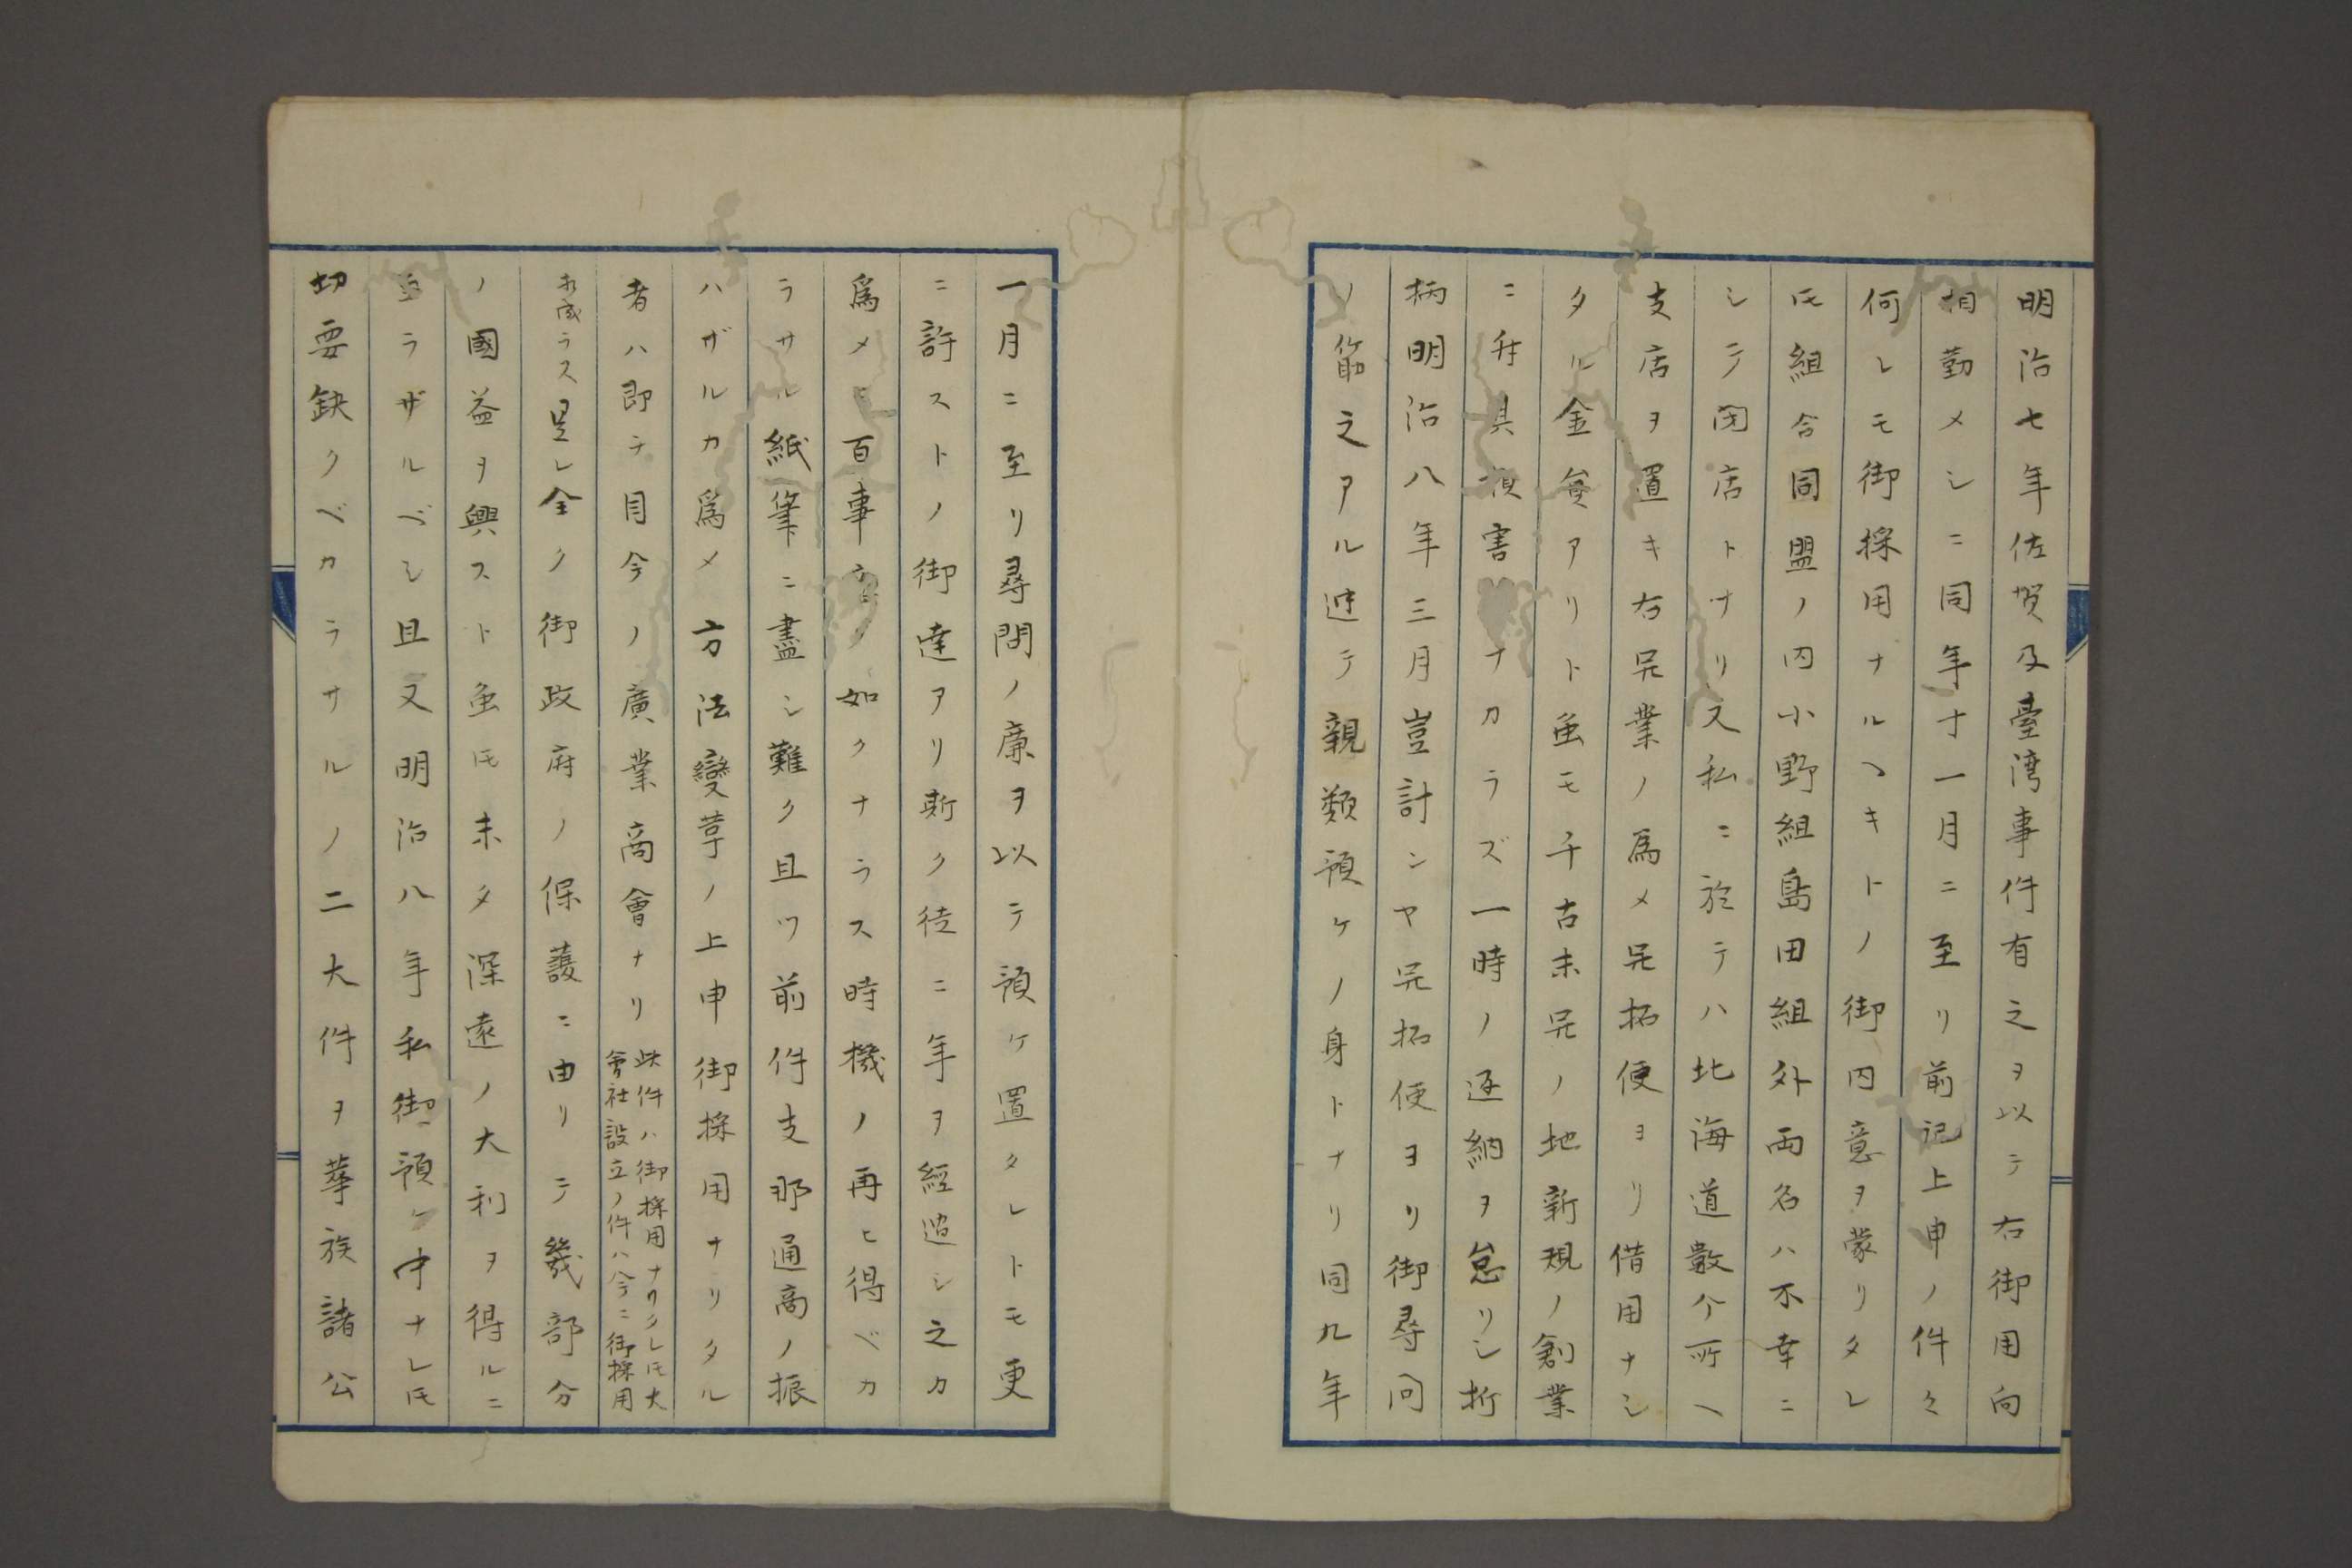 明治七年佐賀及臺湾事件有之ヲ以テ右御用向
相勤メシニ同年十一月ニ至リ前記上申ノ件々
何レモ御採用ナルヘキトノ御内意ヲ蒙リタレ
𪜈組合同盟ノ内小野組島田組外両名ハ不幸ニ
シテ閉店トナリ又私ニ於テハ北海道數ケ所ヘ
支店ヲ置キ右開業ノ為メ開拓使ヨリ借用ナシ
タル金員アリト雖モ千古未開ノ地新規ノ創業
ニ付其損害ナカラズ一時ノ返納ヲ怠リシ折
柄明治八年三月豈計ンヤ開拓使ヨリ御尋問
ノ節之アル迚テ親類預ケノ身トナリ同九年
一月ニ至リ尋問ノ廉ヲ以テ預ケ置タレトモ更
ニ許ストノ御達アリ斯ク徒ニ年ヲ經過シ之カ
爲メニ百事意ノ如クナラス時機ノ再ヒ得ベカ
ラサル紙筆ニ盡シ難ク且ツ前件支那通商ノ振
ハザルカ爲メ方法變革ノ上申御採用ナリタル
者ハ即チ目今ノ廣業商會ナリ
此件ハ御採用ナリタレ𪜈大
會社設立ノ件ハ今ニ御採用
相成ラス是レ全ク御政府ノ保護ニ由リテ幾部分
ノ國益ヲ興スト雖𪜈未タ深遠ノ大利ヲ得ルニ
至ラザルベシ且又明治八年私御預ケ中ナレ𪜈
切要缺クベカラサルノ二大件ヲ華族諸公